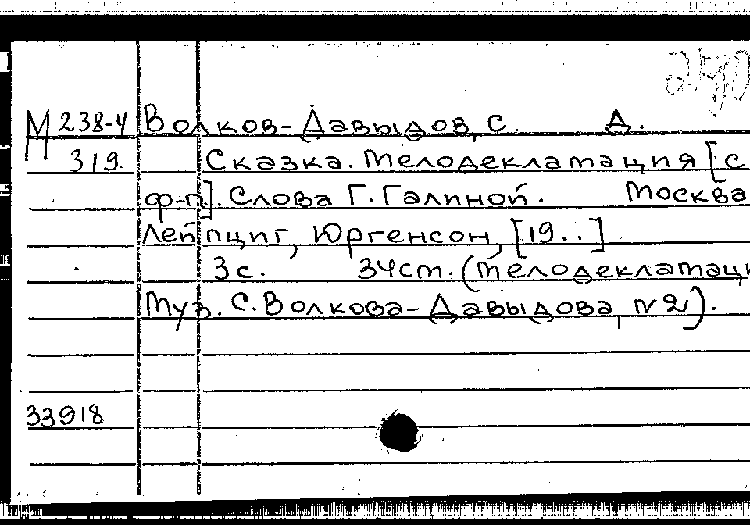 М 238-4 Волков-Давыдов, С. Д.
319. Сказка. Мелодекламация [с
ф-п]. Слова Г. Галиной. Москва
Лейпциг, Юргенсон, [19..]
3 с. 34 см. (Мелодекламаци
Муз. С. Волкова-Давыдова, №2).
33918